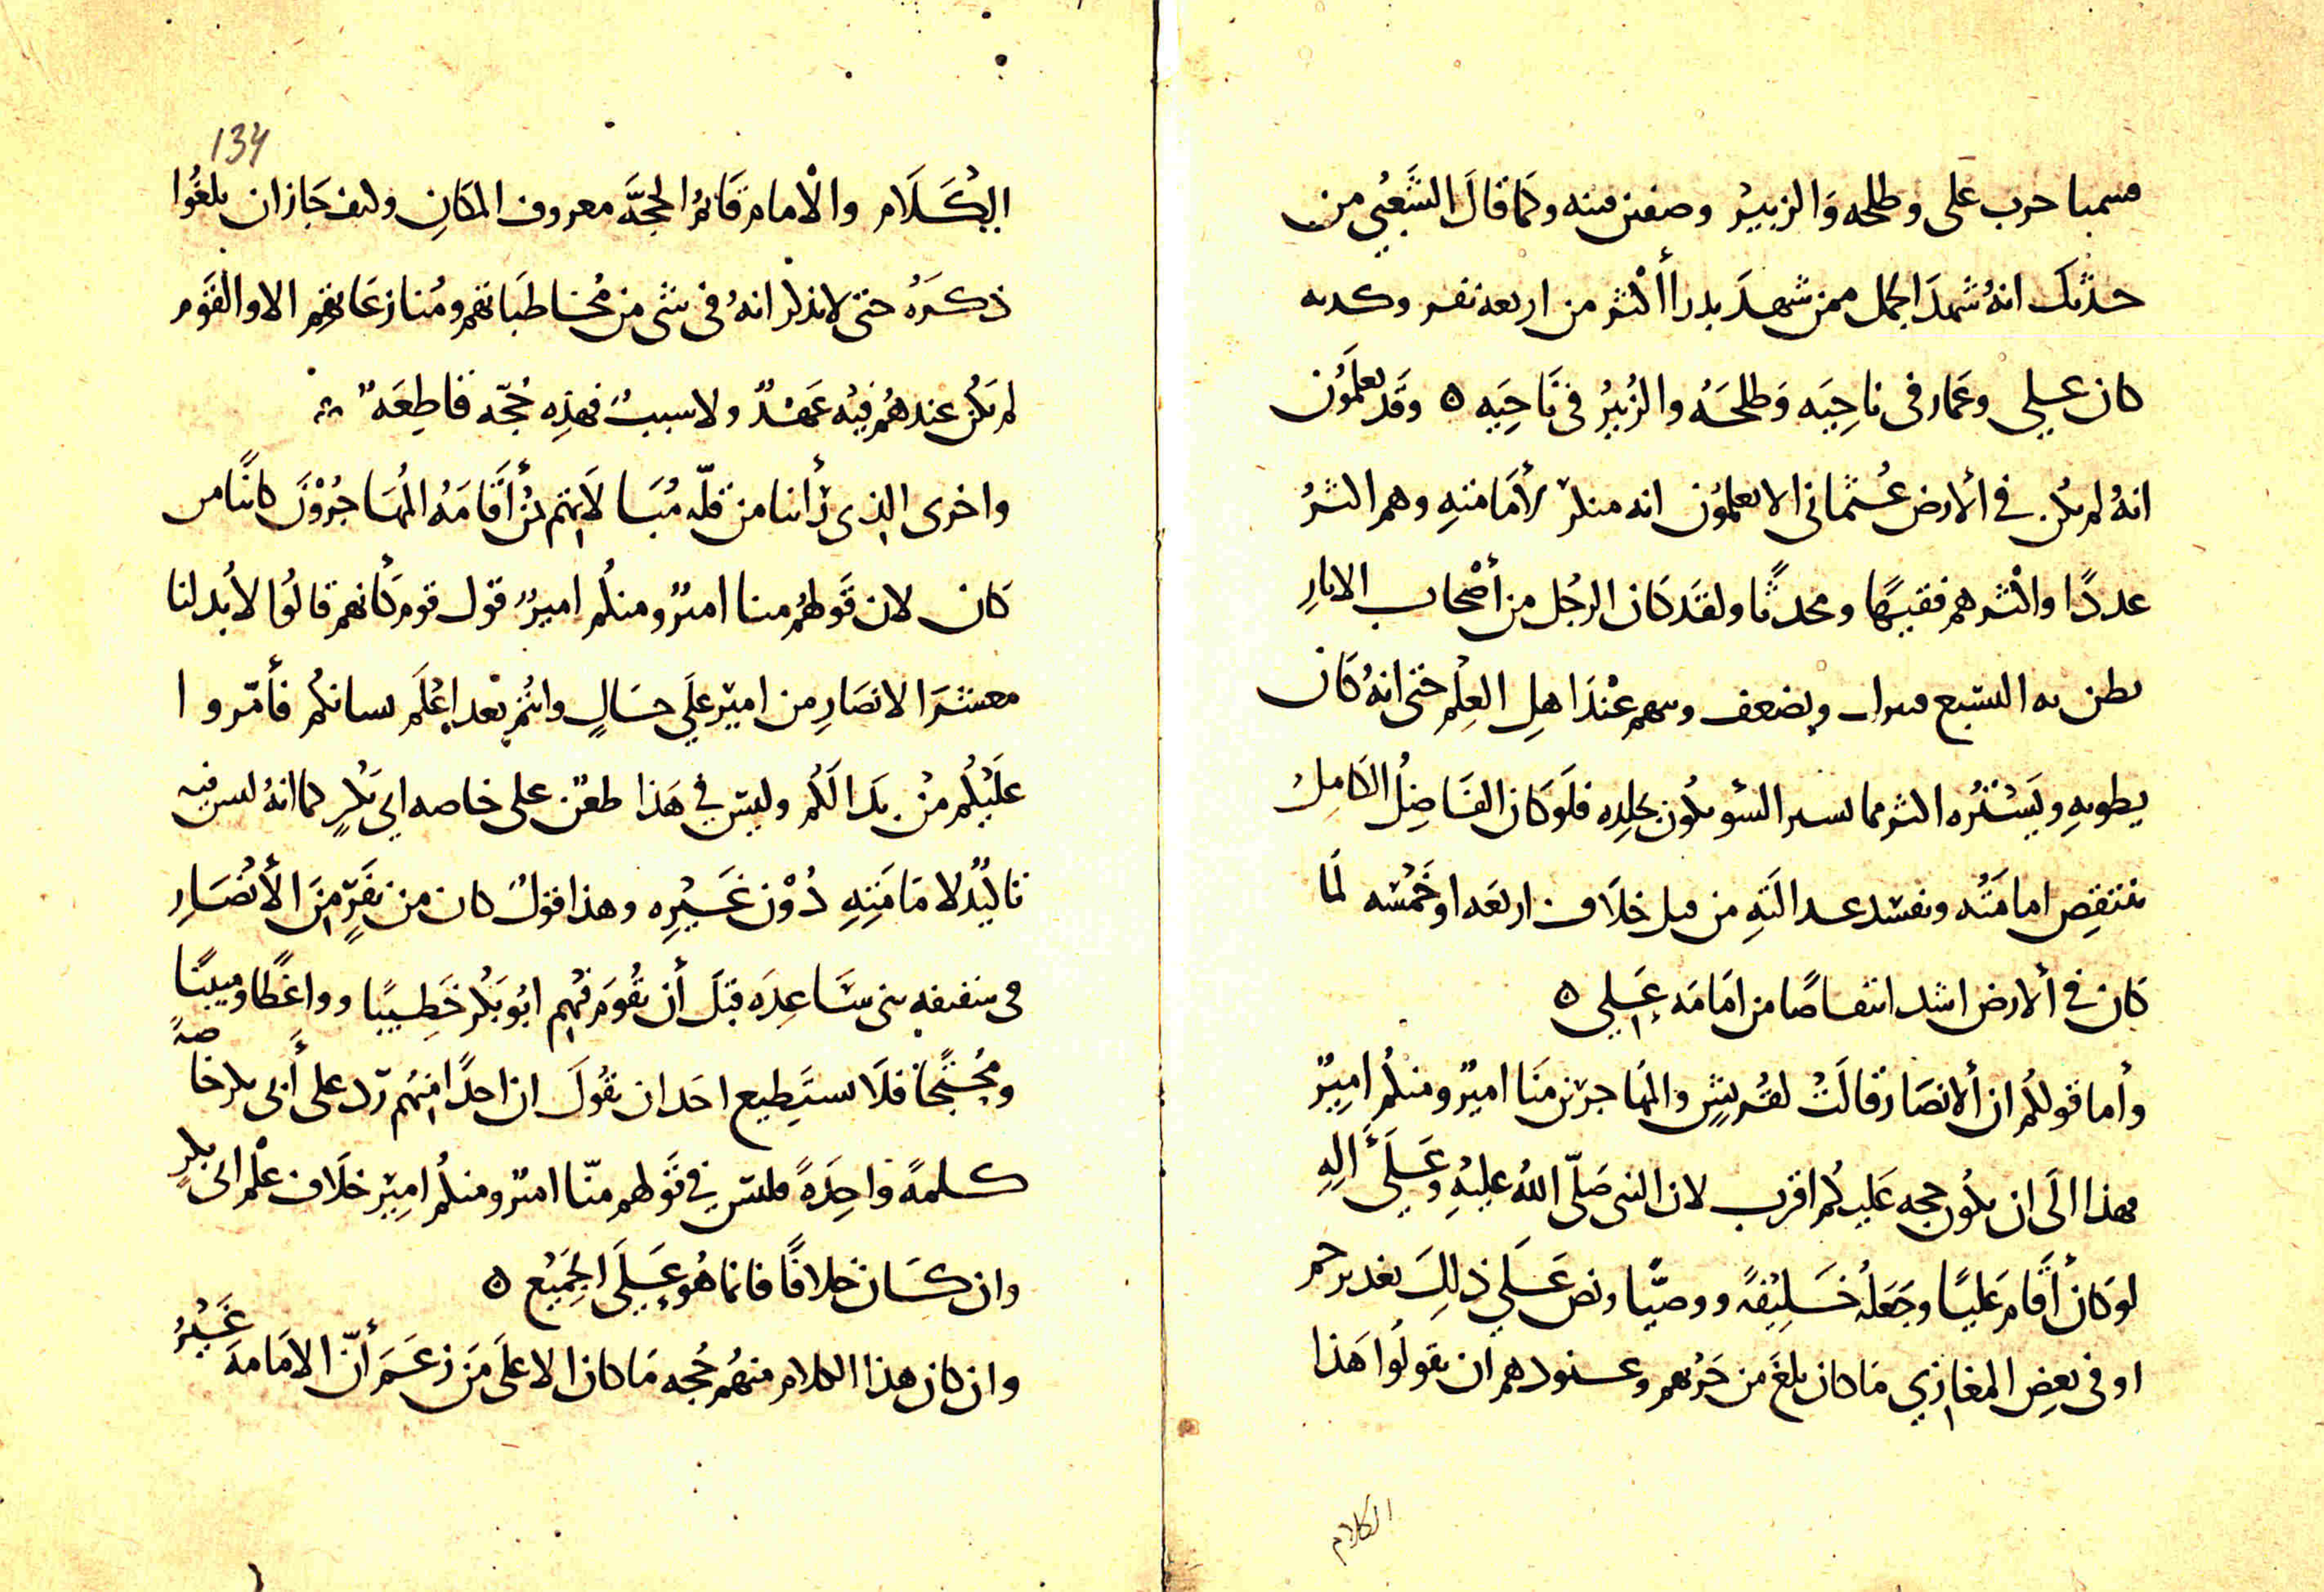 فسمينا حرب علي وطلحه والزبير وصفين فتنه وكما قال الشعبي من
حدثك انهُ شهدَ الجمل ممن شهدَ بدرا أكثر من اربعه نفر وكذبه
كان علي وعمار فى ناحِيَه وَطلحَه والزُبيرُ فى نَاحِيَه ٥ وقَد يعلَمُون
انهُ لم يكن في الأرض عُثمانى الا يعلمُون انه منكر لأمَامَتهِ وهم اكثرُ
عددًا واكثرهم فقيهًا ومحدثًا ولقَد كَان الرجُل من أصْحاب الاثارِ
يظن به التشيع ويضعف ويتهم عنْدَ اهلِ العِلم حتى انهُ كَان
يطويهِ ويَسْتُره اكثر مما يستر السُّو يكُون بجلدِه فلَو كَان الفَاضِلُ الكامِلُ
تنتقِص امامَتُه وتفسد عدالَتهِ من قبل خلَاف اربعَه او خَمسَه لَما
كَان في ألارض اشد انتقاصًا من امَامَه عَلي ٥
وأما قولكُم ان ألانصَار قالَتْ لقُريشٍ والمُهاجرين منَا اميرٌ ومنكُم امِيرٌ
فهذا الَى ان يكُون حجه عَليكُم اقرب لان النبى صَلّى اللهُ عليْهِ وعَلَى ألِهِ
لو كان أقَام عَليًا وجَعَلهُ خَليفهً ووصيًّا ونص عَلَي ذلِكَ بغدير خم
او فى بعضِ المغازي مَا كان بلغَ من حَربهم وعنودهم أن يقولوُا هَذا
الكلام
134
الكَلَام والْامام قَائمُ الحجَّه معروف المكَانِ وكيف جَاز ان بلغُوا
ذكرَهُ حتى لا يذكر انهُ فى شى من مُخاطبَاتهم ومُنازعَاتهم الا والقَوم
لم يكُن عندهُم فيْه عَهْدٌ ولا سببُ فهذِه حُجّه قاطِعَه
واخرى الذى رأينا من قلّه مُبَالاتهم بمَن أقَامَهُ المُهَاجرُوْن كائنًا من
كَان لان قَولهُم منا اميرٌ ومنكُم اميرٌ قول قوم كأنهم قالوُا لا بُد لنا
معشَرَ الانصَارِ من امير علَي حَالٍ وانتُم بَعد اعْلَم بسانكم فأمّروا
علَيْكُم مَنْ بدَا لَكُم وليسَ في هَذا طعْن على خاصه ابي بكْرٍ كما انهُ ليسَ فيه
تاكيْد لامَامَتِهِ دُوْن غَيْرِه وهذا قولُ كان من نفَرٍ منَ الأنْصَارِ
فى سقيفه بنى سَاعِدَه قبْلَ أن يقُوَم فيْهِم ابُو بَكْر خَطِيبًا وواعظًا ومبينًا
ومُحتجًا فلَا يستَطِيع احَد ان يقُولَ ان احدًا منْهُم رَد على أبى بكر خاصهً
كلمهً واحِدَهً فليسَ في قَولهم منّا اميرٌ ومنكُم امِيرٌ خلَاف علَى ابى بكرٍ
وان كَان خلافًا فانما هُو عَلَي الجَميْع ٥
وان كان هذا الكلام منهُم حُجه مَا كان الا علَى مَن زعَمَ أنّ الامَامَه غَيْرُ